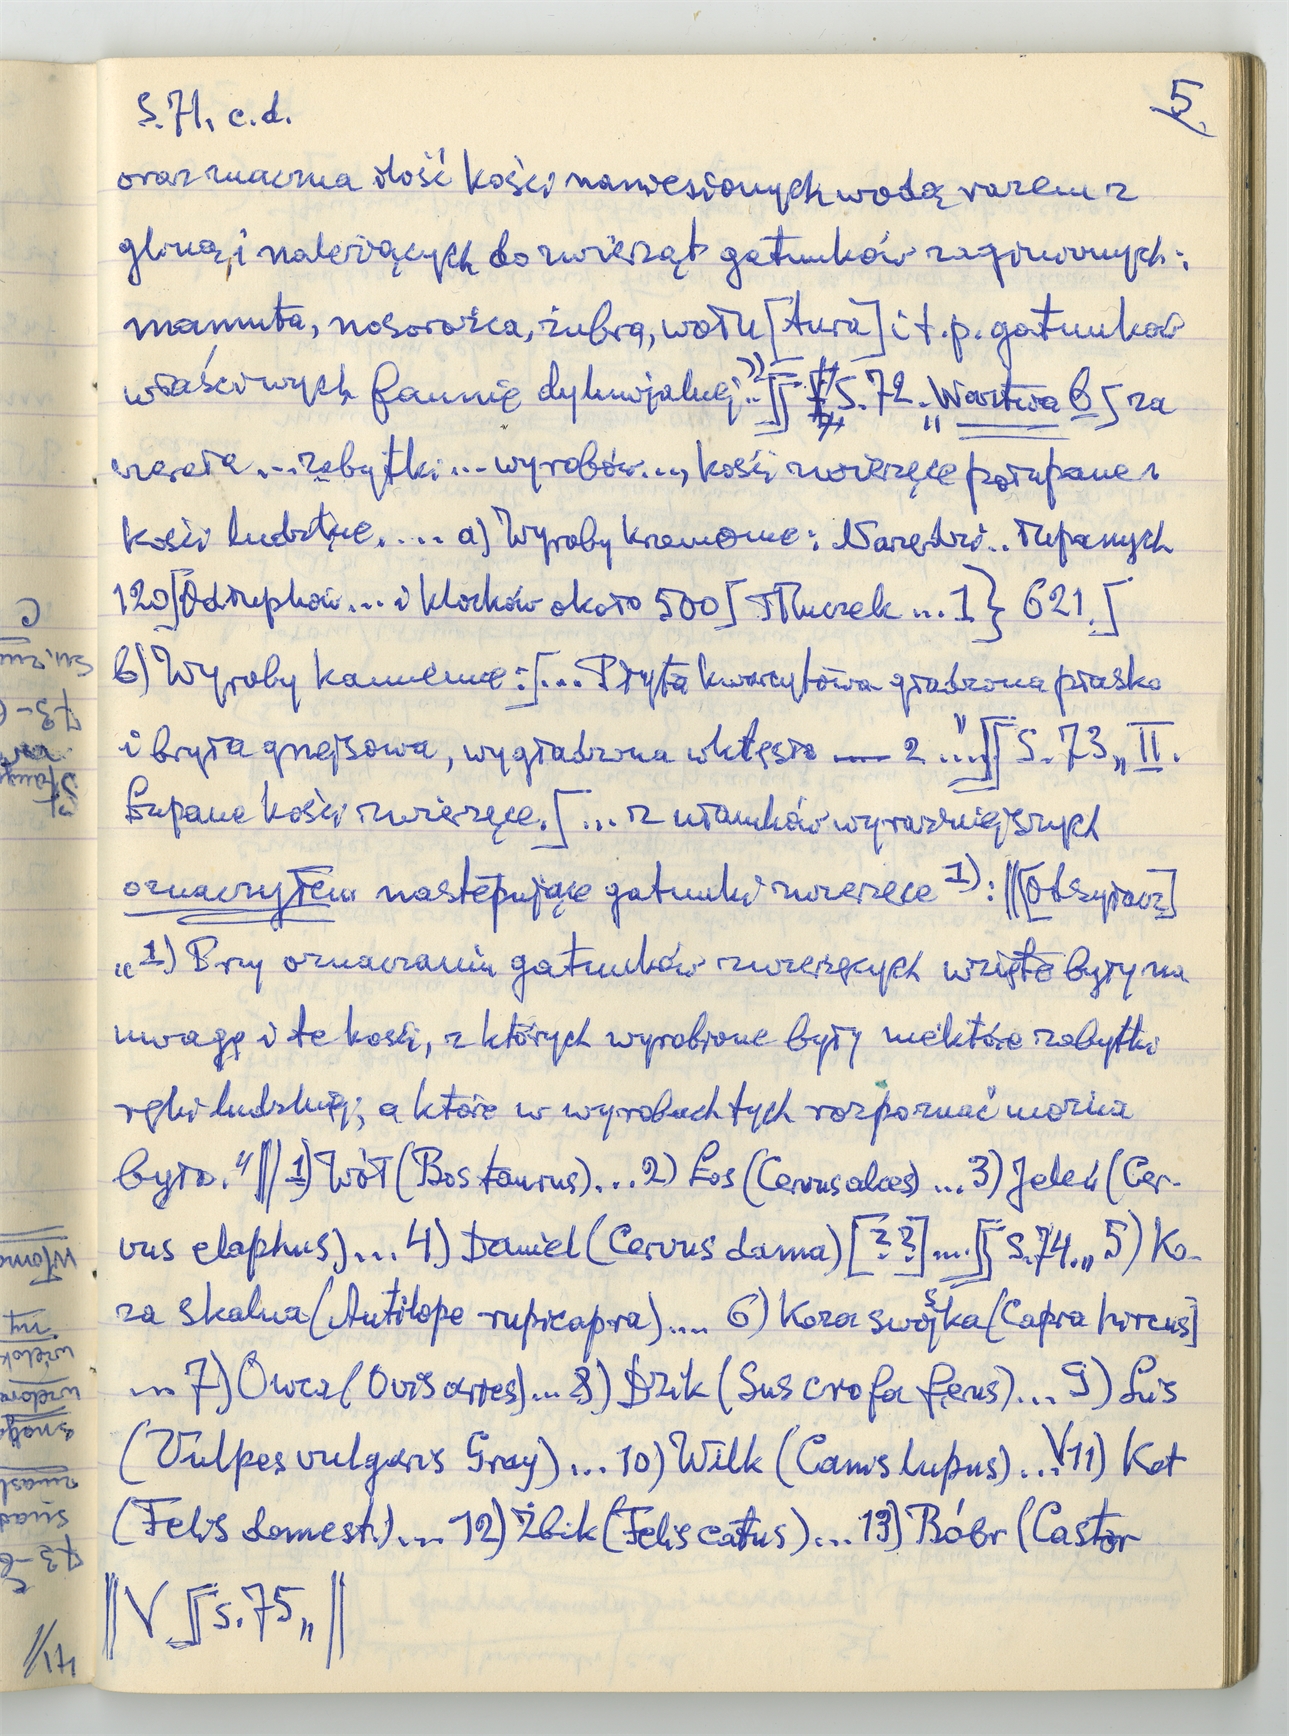 5.
S. 71, c.d.
oraz znaczna ilość kości naniesionych wodą razem z
gliną, i należących do zwierząt gatunków zaginionych:
mamuta, nosorożca, żubra, wołu [tura] i t.p. gatunków
właściwych faunie dyluwjalnej..." S. 72. „Warstwa 6[za
wierała ... zabytki ... wyrobów..., kości zwierzęce połupane i
kości ludzkie. ... a) Wyroby kremowe: Narzędzi.. łupanych
120[Odłupków ... i klocków około 500[Tłuczek ... 1} 621.[
b) Wyroby kamienne:[... Płyta kwarcytowa gładzona płasko
i bryła gnejsowa, wygładzona wklęsło — 2 ..." S. 73 „II.
Łupane kości zwierzęce.[ ... z ułamków wyraźniejszych
oznaczyłem następujące gatunki zwierzęce 1): ||[Odsyłacz]
„1) Przy oznaczaniu gatunków zwierzęcych wzięte były na
uwagę i te kości, z których wyrobione były niektóre zabytki
ręki ludzkiej, a które w wyrobach tych rozpoznać można
było." || 1) Wół (Bos taurus)... 2) Łoś (Cervus alces) ... 3) Jeleń (Cer-
vus elaphus)... 4) Daniel (Cervus dama) [??].... S. 74. „5) Ko-
za skalna (Antilope rupicapra).... 6) Koza swojska (Capra hircus]
... 7) Owca (Ovis aries)... 8) Dzik (Sus scrofa ferus)... 9) Lis
(Vulpes vulgaris Gray)... 10) Wilk (Canis lupus)... V 11) Kot
(Felis domest.).... 12) Żbik (Felis catus)... 13) Bóbr (Castor
|| V S. 75 „ ||